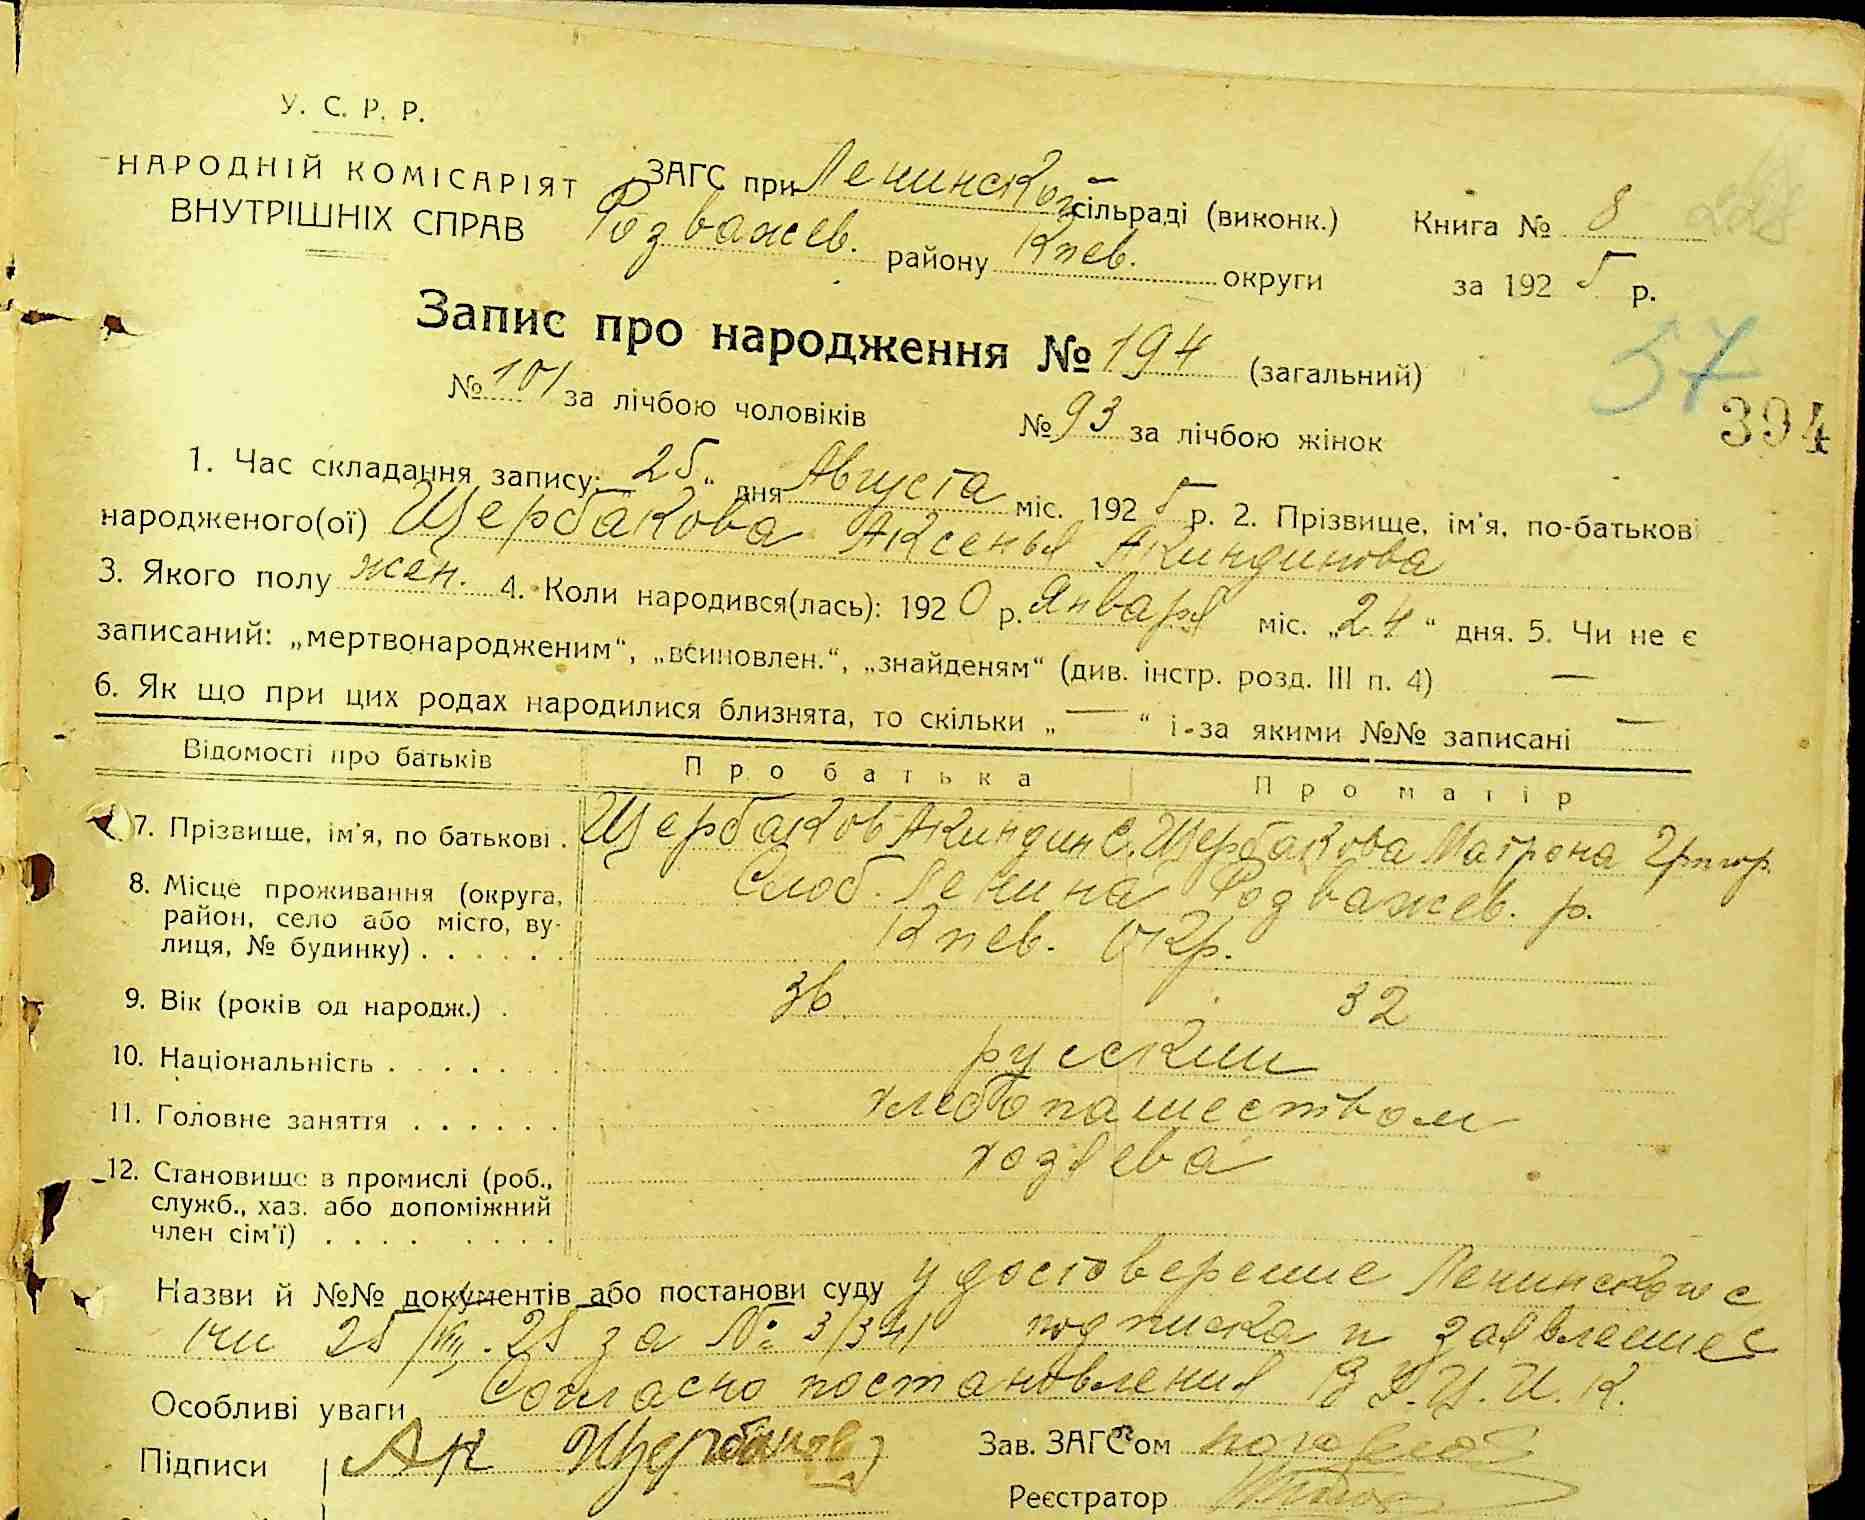 У. С. Р. Р.
НАРОДНІЙ КОМІСАРІЯТ
ВНУТРІШНІХ СПРАВ
ЗАГС при Ленинской сільраді (виконк.) Книга № 8
Розважев. району Киев. округи за 1925 р.
Запис про народження № 194 (загальний)
57
№ 101 за лічбою чоловіків № 93 за лічбою жінок
394
1. Час складання запису: 25 " дня Августа міс. 1925 р. 2. Прізвище, ім'я, по-батькові
народженого(ої) Щербакова Аксенья Акиндинова
3. Якого полу жен. 4. Коли народився(лась): 1920 р. Января міс. „24" дня. 5. Чи не є
записаний: „мертвонародженим", „всиновлен.", „знайденям" (див. інстр. розд. III п. 4) —
6. Як що при цих родах народилися близнята, то скільки „—" і за якими №№ записані —
Відомості про батьків Про батька Про матір
7. Прізвище, ім'я, по батькові . Щербаков Акиндин С. Щербакова Матрона Григор.
8. Місце проживання (округа, Слоб. Ленина Розважев. р.
район, село або місто, ву-
лиця, № будинку) . . . . . . Киев. окр.
9. Вік (років од народж.) . 36 32
10. Національність . . . . . . . русскии
11. Головне заняття . . . . . . хлебопашеством
12. Становище в промислі (роб., хозяева
служб., хаз. або допоміжний
член сім'ї) . . . . . . . . .
Назви й №№ документів або постанови суду удостоверение Ленинского с
25/VIII.25 за № 3/341 подписка и заявление
Особливі уваги Согласно постановления В У.Ц.И.К.
Підписи Ак Щербаков Зав. ЗАГС'ом
Реєстратор